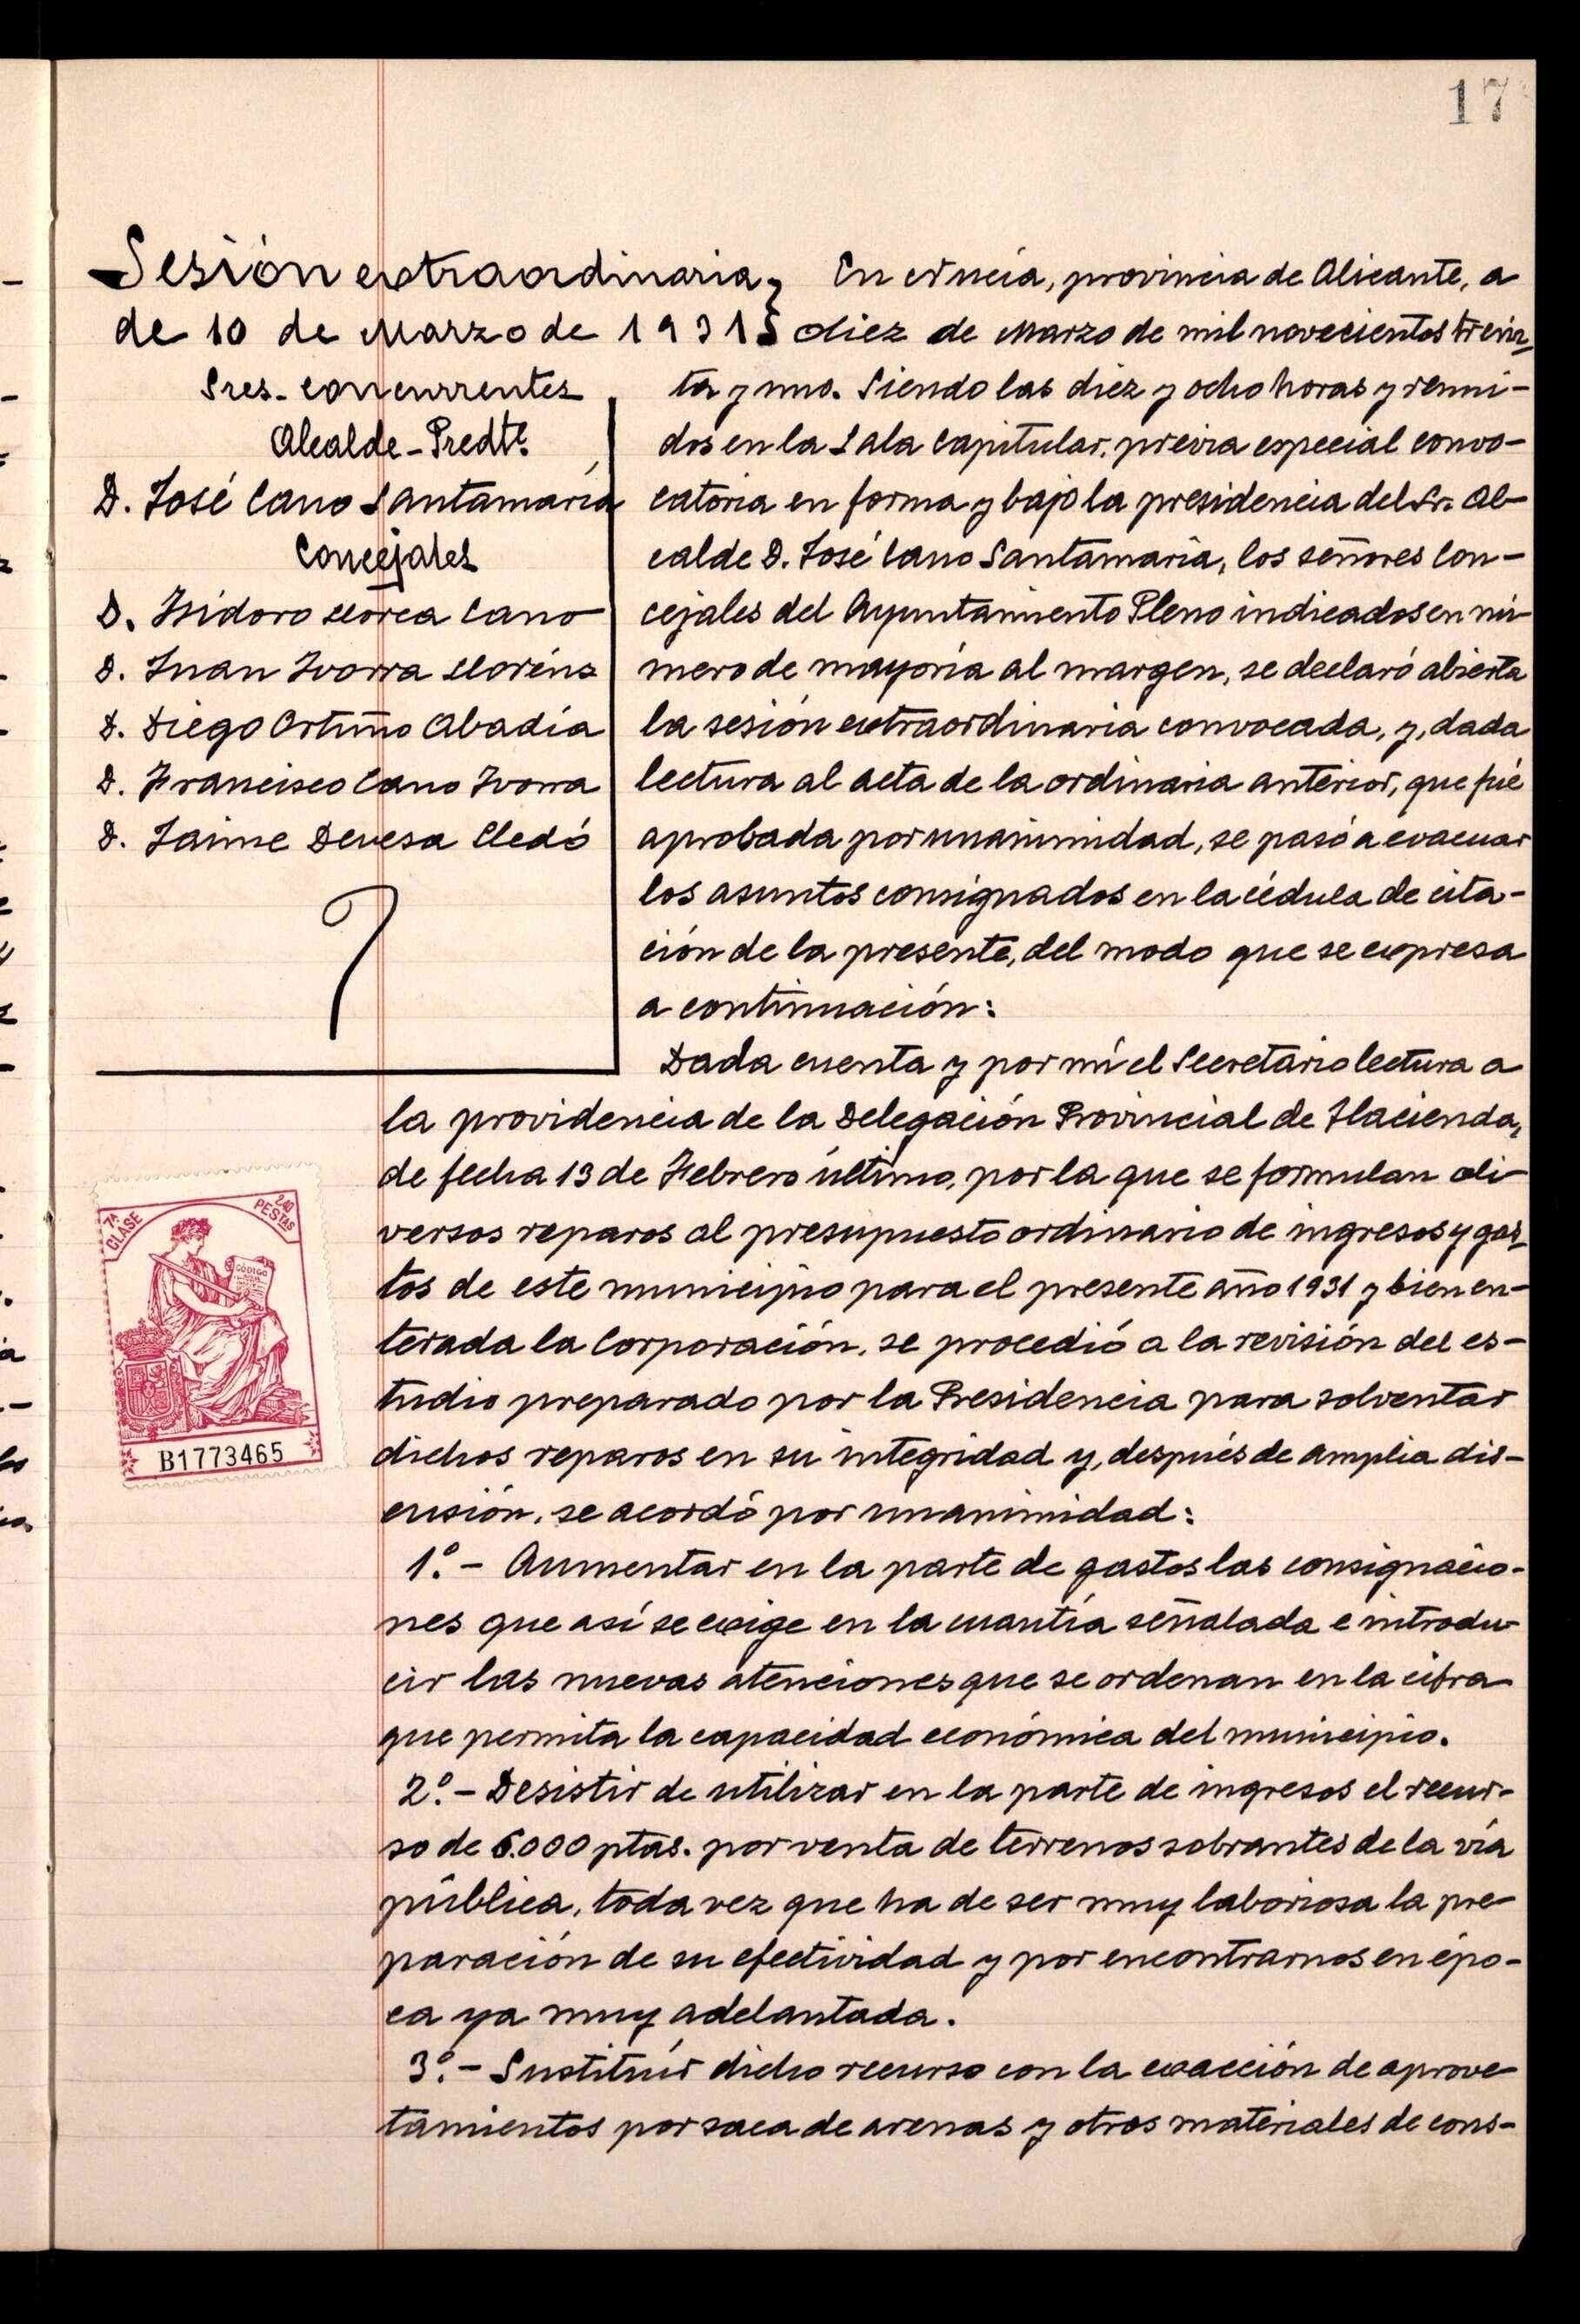 17
Sesión extraordinaria
de 10 de Marzo de 1931
Sres. Concurrentes
Alcalde-Predte.
D. José Cano Santamaría
Concejales
D. Isidoro Llorca Cano
D. Juan Ivorra Lloréns
D. Diego Ortuño Abadía
D. Francisco Cano Ivorra
D. Jaime Devesa Lledó
En Nucía, provincia de Alicante, a
diez de Marzo de mil novecientos trein-
ta y uno. Siendo las diez y ocho horas y reuni-
dos en la Sala Capitular, previa especial convo-
catoria en forma y bajo la presidencia del Sr. Al-
calde D. José Cano Santamaría, los señores Con-
cejales del Ayuntamiento Pleno indicados en nú-
mero de mayoría al margen, se declaró abierta
la sesión extraordinaria convocada, y, dada
lectura al acta de la ordinaria anterior, que fué
aprobada por unanimidad, se pasó a evacuar
los asuntos consignados en la cédula de cita-
ción de la presente, del modo que se expresa
a continuación:
Dada cuenta y por mí el Secretario lectura a
la providencia de la Delegación Provincial de Hacienda,
de fecha 13 de Febrero último, por la que se formulan di-
versos reparos al presupuesto ordinario de ingresos y gas-
tos de este municipio para el presente año 1931 y bien en-
terada la Corporación, se procedió a la revisión del es-
tudio preparado por la Presidencia para solventar
dichos reparos en su integridad y, después de amplia dis-
cusión, se acordó por unanimidad:
1º.- Aumentar en la parte de gastos las consignacio-
nes que así se exige en la cuantía señalada e introdu-
cir las nuevas atenciones que se ordenan en la cifra
que permita la capacidad económica del municipio.
2º.- Desistir de utilizar en la parte de ingresos el recur-
so de 6.000 ptas. por venta de terrenos sobrantes de la vía
pública, toda vez que ha de ser muy laboriosa la pre-
paración de su efectividad y por encontrarnos en épo-
ca ya muy adelantada.
3º.- Sustituír dicho recurso con la exacción de aprove-
tamientos por saca de arenas y otros materiales de cons-
7ª CLASE
2,40 PESTAS
CÓDIGO
B1773465